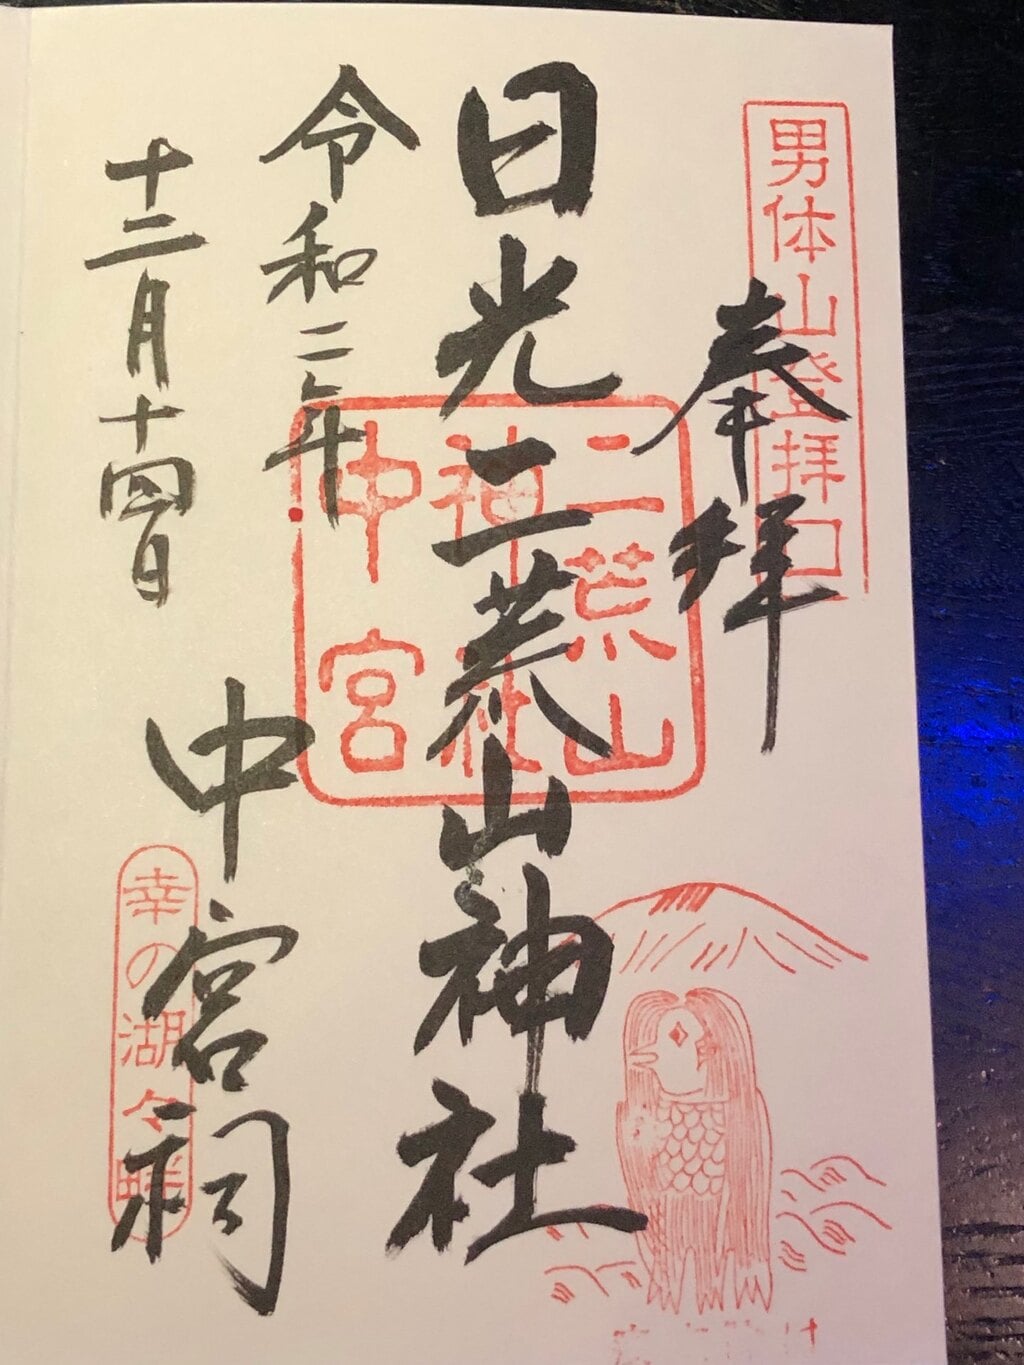 男体山登拝口
奉拝
日光二荒山神社
二荒山
神社
中宮
令和二年
十二月十四日
中宮祠
幸の湖々畔